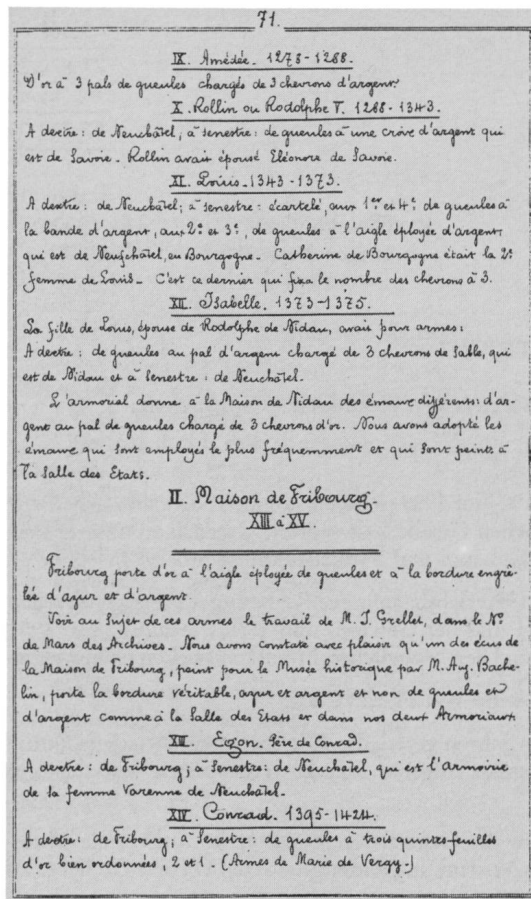 71.
IX. Amédée. 1278-1288.
D'or à 3 pals de gueules chargés de 3 chevrons d'argent.
X. Rollin ou Rodolphe V. 1288-1343.
A dextre : de Neuchâtel, à senestre : de gueules à une croix d'argent qui
est de Savoie - Rollin avait épousé Eléonore de Savoie.
XI. Louis - 1343-1373.
A dextre : de Neuchâtel ; à senestre : écartelé, aux 1er et 4e de gueules à
la bande d'argent, aux 2e et 3e, de gueules à l'aigle éployée d'argent,
qui est de Neufchâtel, en Bourgogne - Catherine de Bourgogne était la 2e
femme de Louis - C'est ce dernier qui fixa le nombre des chevrons à 3.
XII. Isabelle. 1373-1375.
La fille de Louis, épouse de Rodolphe de Nidau, avait pour armes :
A dextre : de gueules au pal d'argent chargé de 3 chevrons de sable, qui
est de Nidau et à senestre : de Neuchâtel.
L'armorial donne à la Maison de Nidau des émaux différents : d'ar-
gent au pal de gueules chargé de 3 chevrons d'or. Nous avons adopté les
émaux qui sont employés le plus fréquemment et qui sont peints à
la Salle des Etats.
II. Maison de Fribourg.
XIII à XV.
Fribourg porte d'or à l'aigle éployée de gueules et à la bordure engrê-
lée d'azur et d'argent.
Voir au sujet de ces armes le travail de M. J. Grellet, dans le No
de Mars des Archives - Nous avons constaté avec plaisir qu'un des écus de
la Maison de Fribourg, peint pour le Musée historique par M. Aug. Bache-
lin, porte la bordure véritable, azur et argent et non de gueules et
d'argent comme à la Salle des Etats et dans nos deux Armoriaux.
XIII. Egon. Père de Conrad.
A dextre : de Fribourg ; à senestre : de Neuchâtel, qui est l'armoirie
de sa femme Varenne de Neuchâtel.
XIV. Conrad. 1395-1424.
A dextre : de Fribourg ; à senestre : de gueules à trois quintes-feuilles
d'or bien ordonnées, 2 et 1. (Armes de Marie de Vergy.)